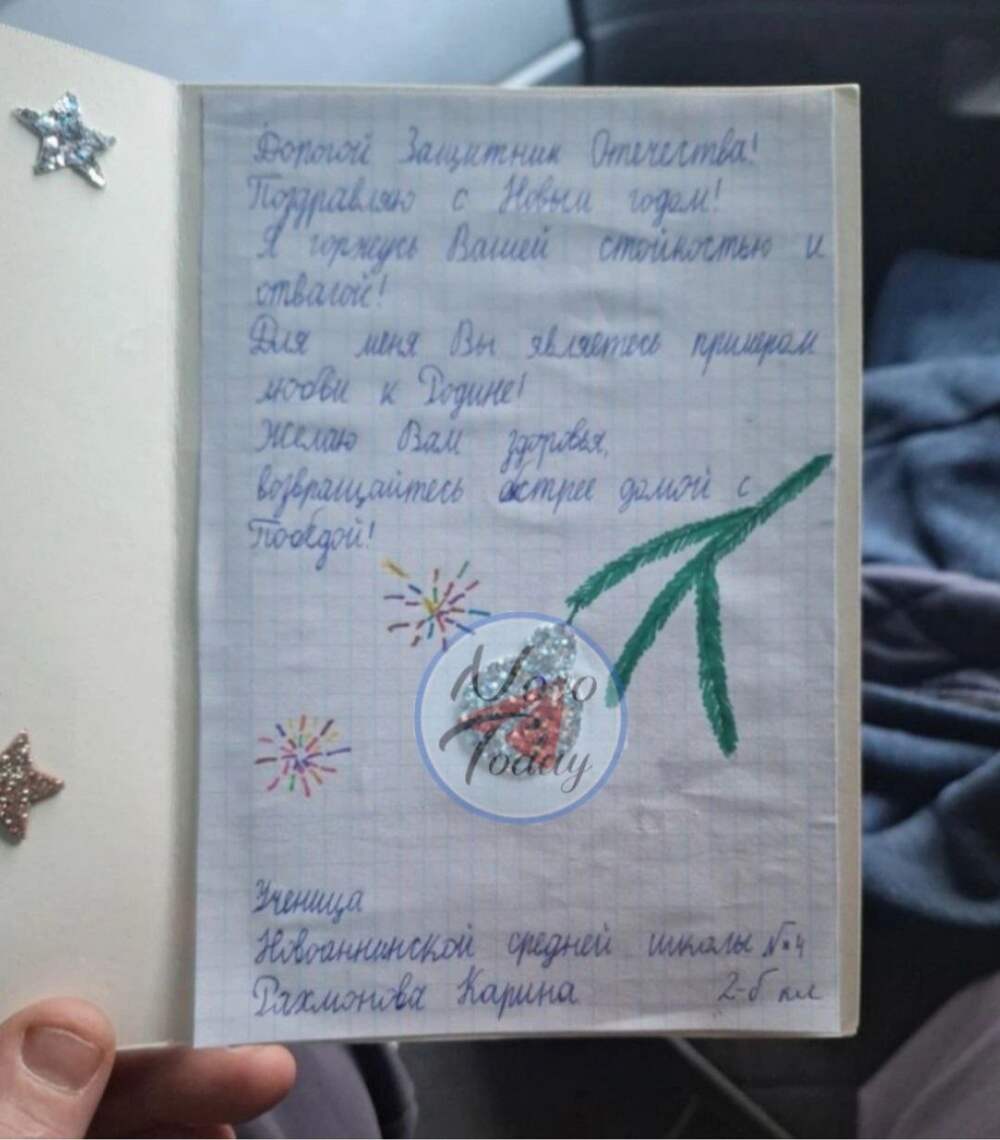 Дорогой Защитник Отечества!
Поздравляю с Новым годом!
Я горжусь Вашей стойкостью и
отвагой!
Для меня Вы являетесь примером
любви к Родине!
Желаю Вам здоровья,
возвращайтесь быстрее домой с
Победой!
Novo
Today
Ученица
Новоаннинской средней школы №4
Рахмонова Карина 2-б кл